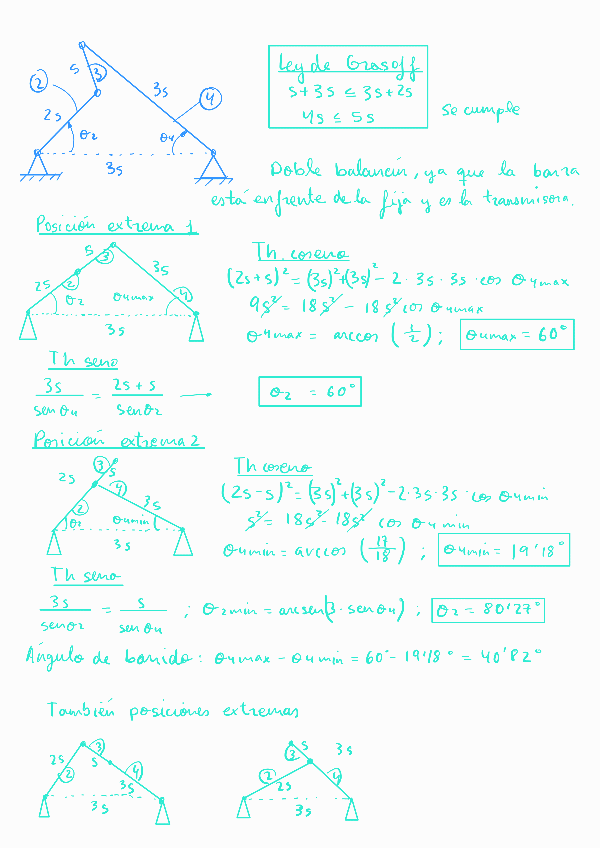 Ley de Grasoff
s + 3s ≤ 3s + 2s
4s ≤ 5s
se cumple
s
3
2
3s
4
2s
θ2
θ4
3s
Doble balancín, ya que la barra
está enfrente de la fija y es la transmisora.
Posición extrema 1
s
3
2s
2
3s
θ2
θ4max
4
3s
Th. coseno
(2s+s)² = (3s)² + (3s)² - 2 · 3s · 3s · cos θ4max
9s² = 18s² - 18s² cos θ4max
θ4max = arccos (1/2) ; θ4max = 60°
Th seno
3s/senθ4 = 2s+s/senθ2 — θ2 = 60°
Posición extrema 2
3
s
2s
4
2
3s
θ2
θ4min
3s
Th coseno
(2s-s)² = (3s)² + (3s)² - 2·3s·3s · cos θ4min
s² = 18s² - 18s² cos θ4min
θ4min = arccos (17/18) ; θ4min = 19'18°
Th seno
3s/senθ2 = s/senθ4 ; θ2min = arcsen(3 · senθ4) ; θ2 = 80'27°
Ángulo de barrido: θ4max - θ4min = 60° - 19'18° = 40'82°
También posiciones extremas
2s
3
s
2
4
3s
3s
s
3
3s
2
2s
4
3s